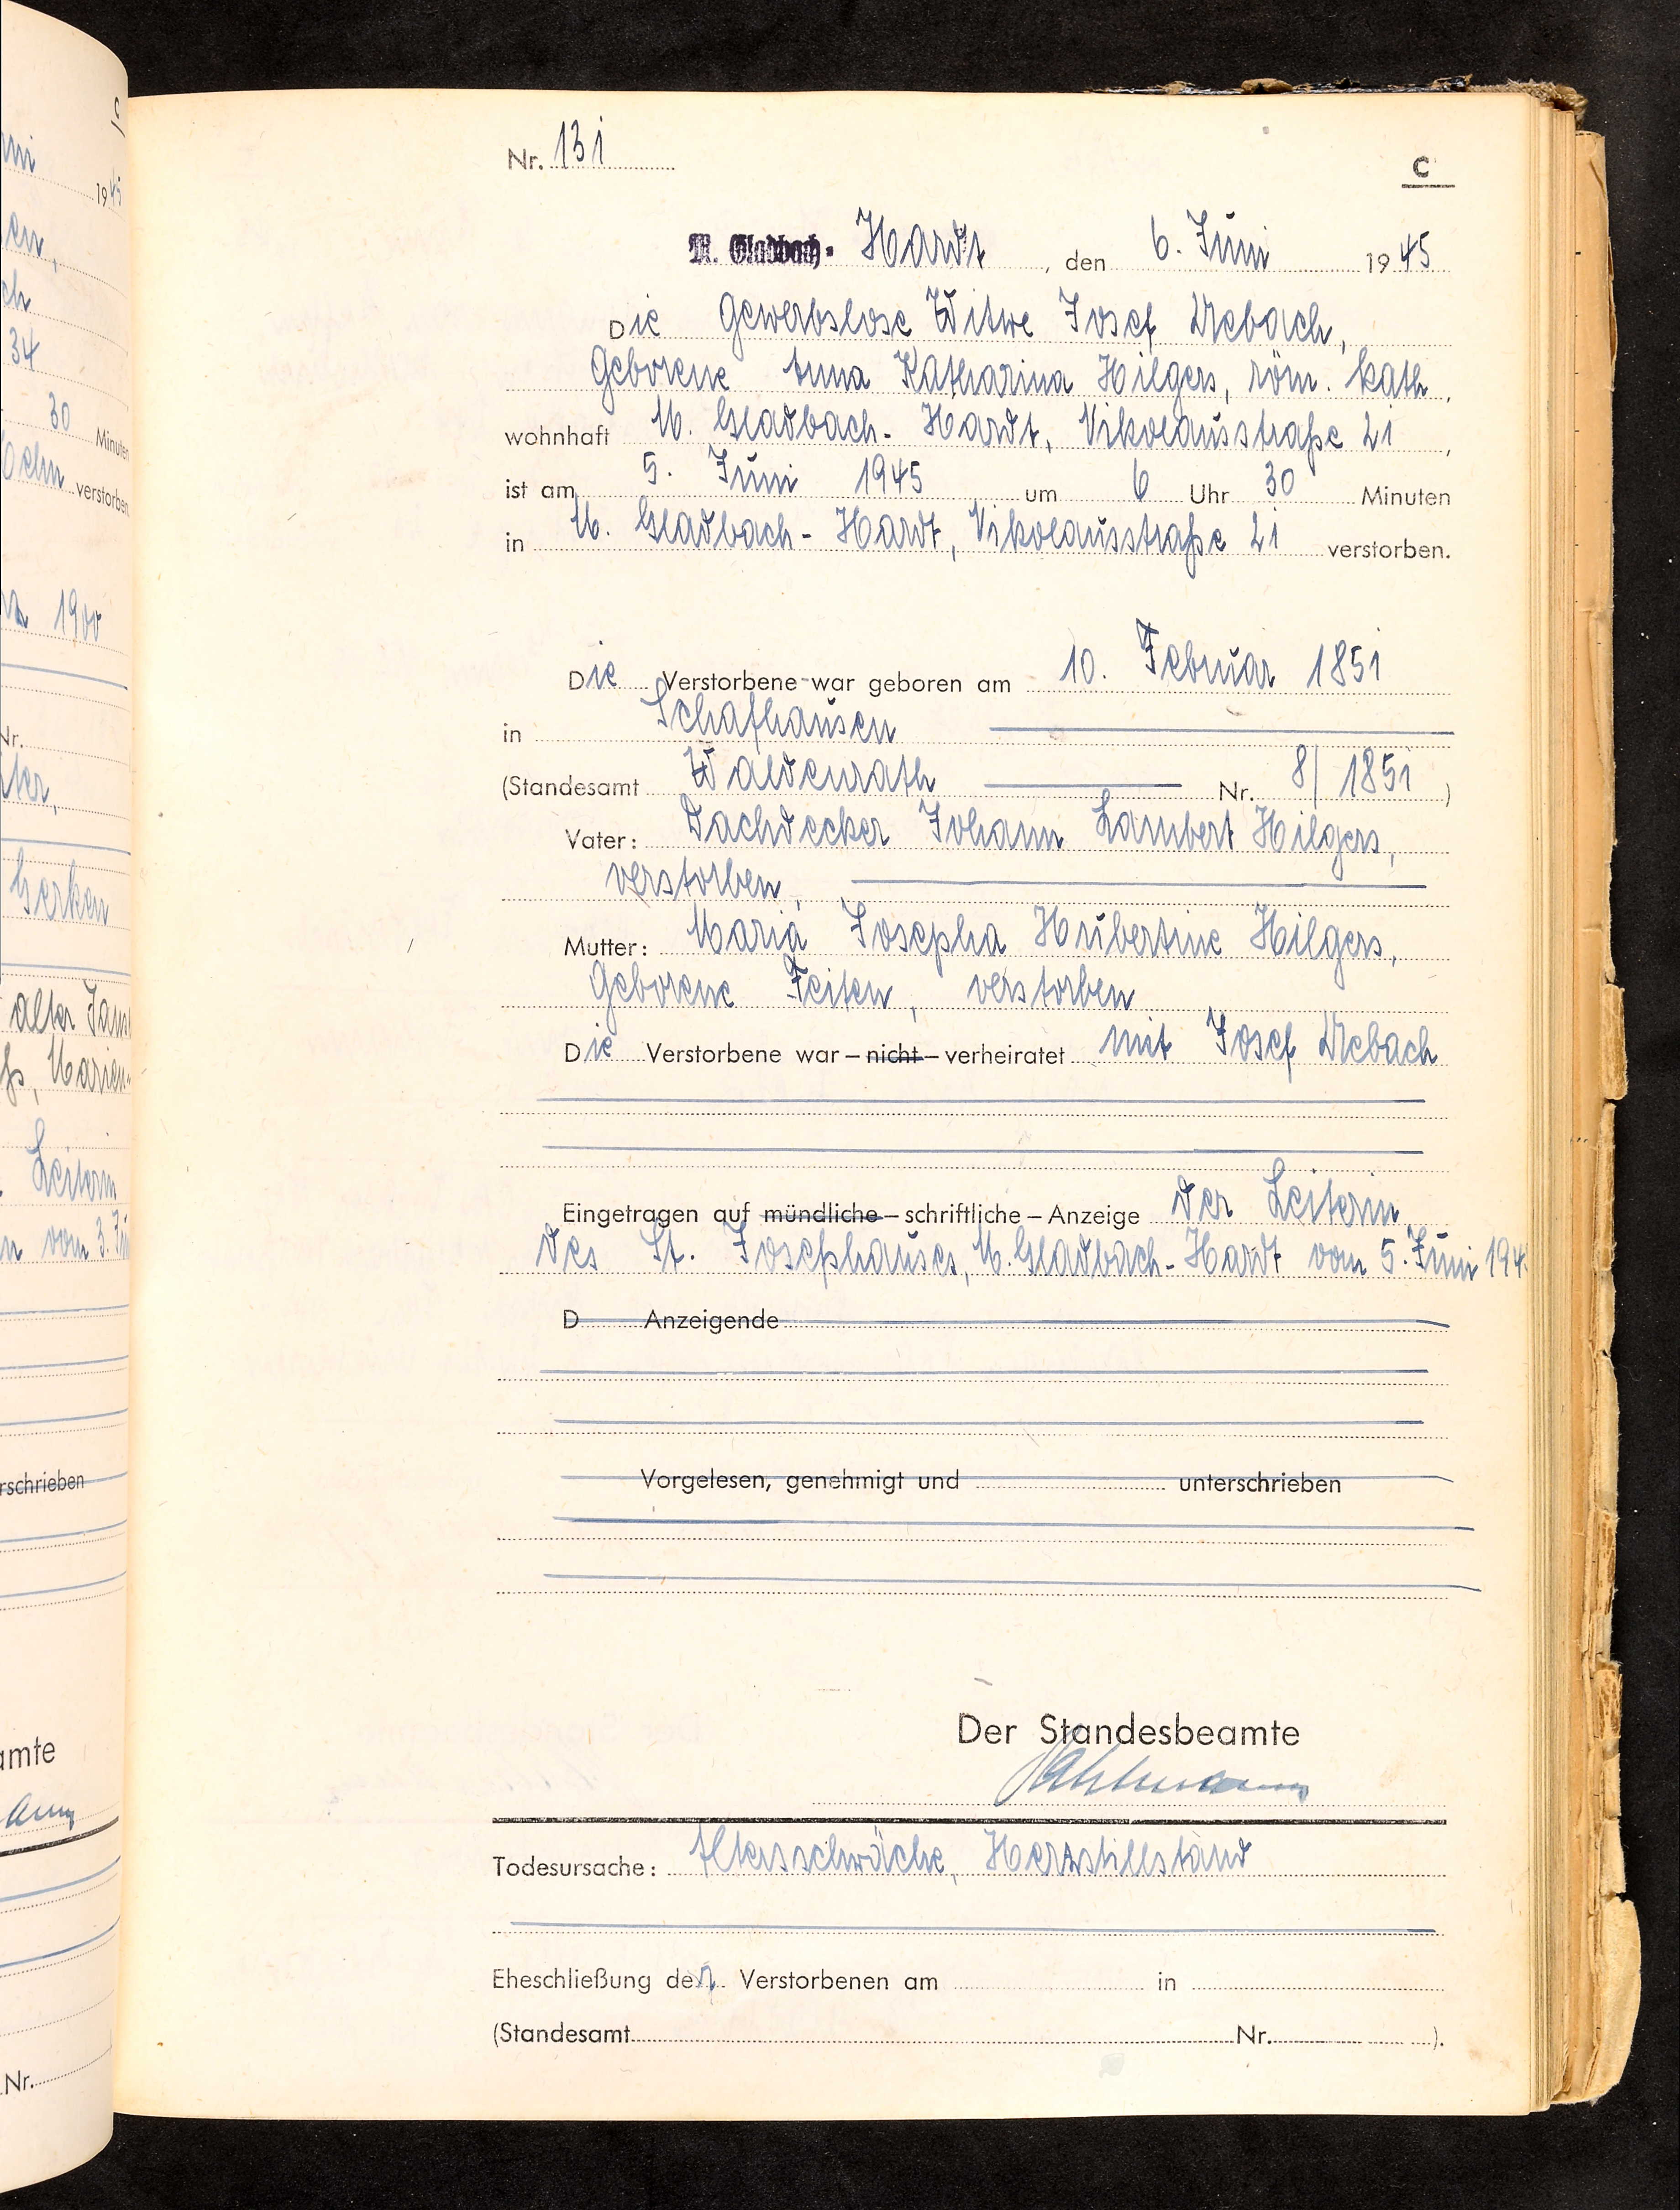 ni
1945
en,
ch
34
30 Minuten
verstorben
1900
Nr.
ter,
Gerken
alter
Marien-
Leiterin
n vom 3.
rschrieben
amte
Nr.
Nr. 131
C
M. Gladbach- Hardt, den 6. Juni 1945
Die Gewerbslose Witwe Josef Urebach,
geborene Anna Katharina Hilgers, röm. kath,
wohnhaft M. Gladbach- Hardt, Nikolausstraße 21,
ist am 5. Juni 1945 um 6 Uhr 30 Minuten
in M. Gladbach- Hardt, Nikolausstraße 21 verstorben.
Die Verstorbene war geboren am 10. Februar 1851
in Schafhausen
(Standesamt Waldenrath Nr. 8/1851)
Vater: Dachdecker Johann Lambert Hilgers,
verstorben,
Mutter: Maria Josepha Hubertine Hilgers,
geborene Feiten, verstorben
Die Verstorbene war – nicht – verheiratet mit Josef Urebach
Eingetragen auf mündliche – schriftliche – Anzeige der Leiterin
des St. Josephhauses, M. Gladbach- Hardt vom 5. Juni 194
D Anzeigende
Vorgelesen, genehmigt und unterschrieben
Der Standesbeamte
Todesursache: Altersschwäche, Herzstillstand
Eheschließung der Verstorbenen am in
(Standesamt Nr. ).